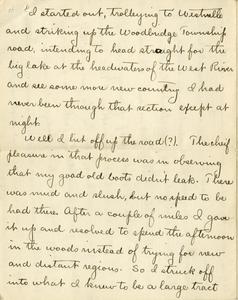 "I started out, trolleying to Westville
and striking up the Woodbridge Township
road, intending to head straight for the
big lake at the headwaters of the West River
and see some more new country I had
never been through that section except at
night.
Well I hit off up the road(?). The chief
pleasure in that process was in observing
that my good old boots didn't leak. There
was mud and slush, but no sped to be
had there. After a couple of miles I gave
it up and resolved to spend the afternoon
in the woods instead of trying for new
and distant regions. So I struck off
into what I knew to be a large tract